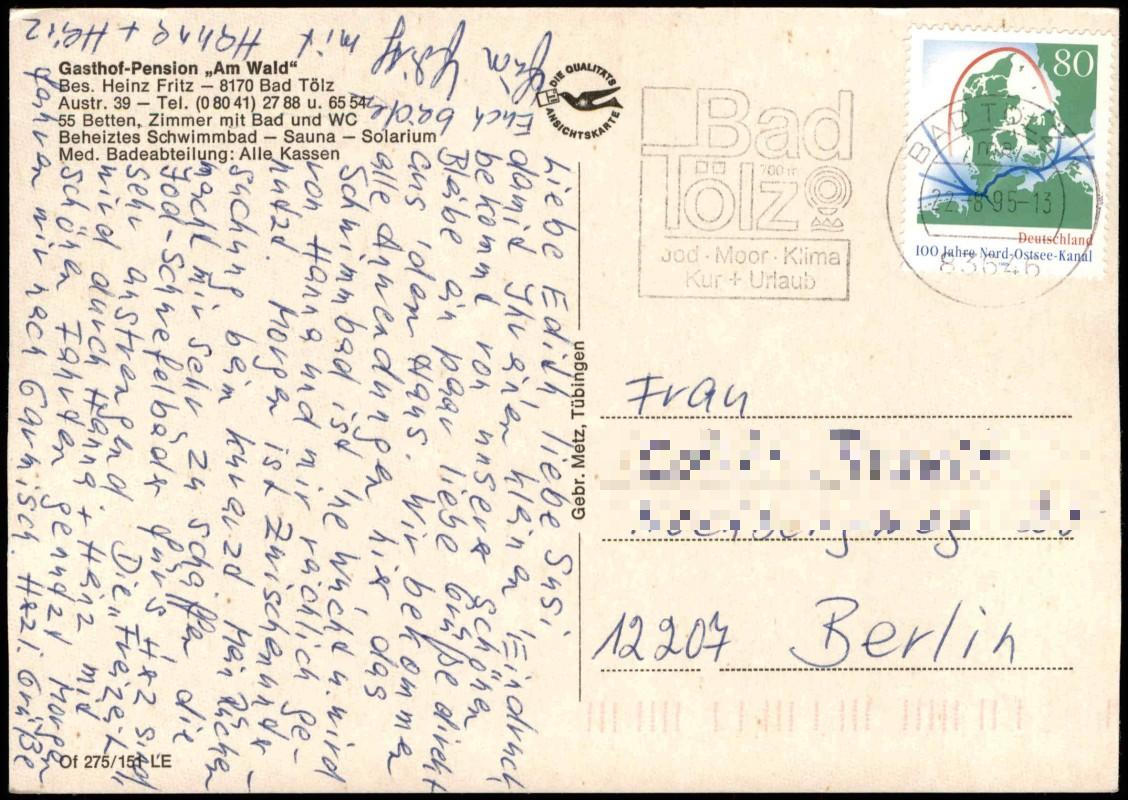 Gasthof-Pension „Am Wald“
Bes. Heinz Fritz – 8170 Bad Tölz
Austr. 39 – Tel. (0 80 41) 27 88 u. 65 54
55 Betten, Zimmer mit Bad und WC
Beheiztes Schwimmbad – Sauna – Solarium
Med. Badeabteilung: Alle Kassen
DIE QUALITÄTS
ANSICHTSKARTE
Liebe Edith liebe Susi
damit Ihr einen kleinen Eindruck
bekomt von unserer schönen
Bleibe ein paar liebe Grüße direkt
aus dem Haus. Wir bekommen
alle Anwendungen hir das
Schwimmbad ist ne Wucht u. wird
von Hanna und mir reichlich ge-
nutzt. Morgen ist Zwischenunter-
suchung bein Kurarzt Mein Rücken
macht mir sehr zu schaffen die
Jod-Schwefelbäder für's Herz sind
sehr anstrengend. Die Freizeit
wird durch Hanna + Heinz mit
schönen Fahrten genutzt Morgen
fahren wir nach Garmisch. Herzl. Grüße
Euch beiden
mit
Hanna + Heinz
Of 275/151 LE
Gebr. Metz, Tübingen
Bad
Tölz
Jod · Moor · Klima
Kur + Urlaub
BAD TÖLZ
22.-8.95-13
83646
80
Deutschland
100 Jahre Nord-Ostsee-Kanal
Frau
12207 Berlin